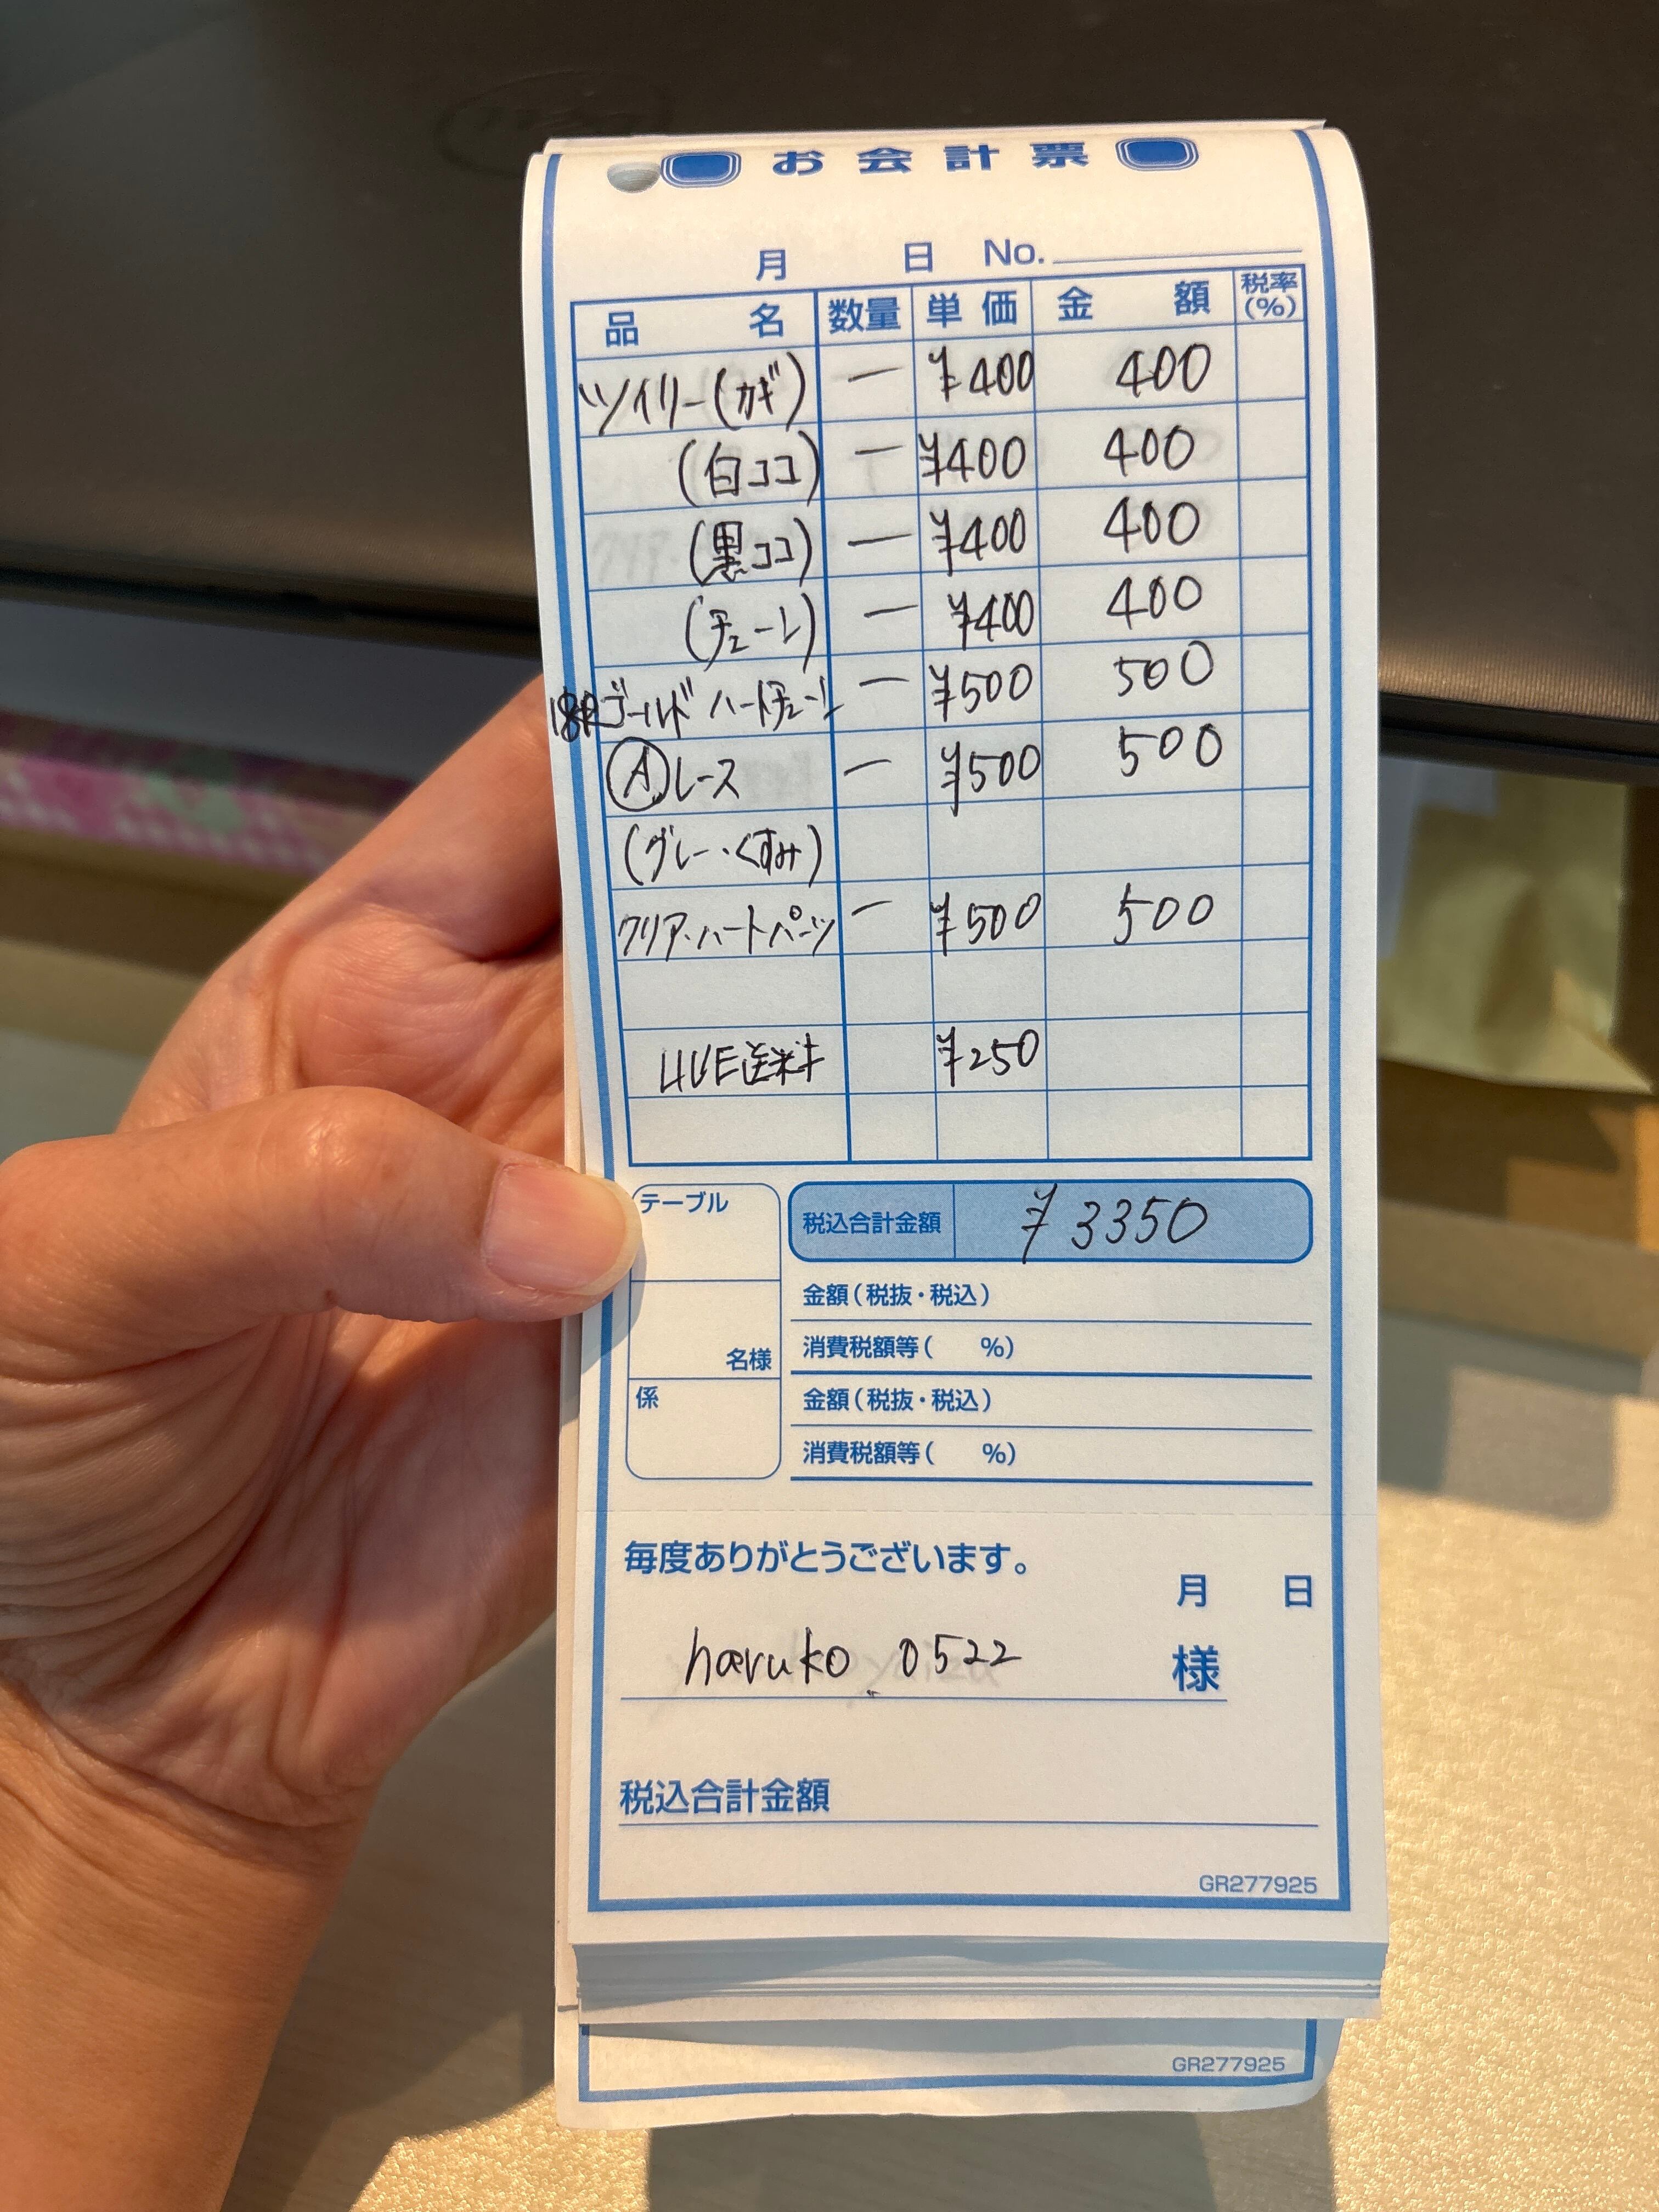 お会計票
月 日 No.
品名 数量 単価 金額 税率(%)
ツイリー(カギ) 一 ¥400 400
(白ココ) 一 ¥400 400
(黒ココ) 一 ¥400 400
(チュール) 一 ¥400 400
ゴールドハートチュール 一 ¥500 500
Ⓐレース 一 ¥500 500
(グレー・くすみ)
クリア・ハートパーツ 一 ¥500 500
LIVE送料 ¥250
テーブル
税込合計金額 ¥3350
金額(税抜・税込)
消費税額等( %)
名様
係
金額(税抜・税込)
消費税額等( %)
毎度ありがとうございます。
月 日
haruko_0522 様
税込合計金額
GR277925
GR277925